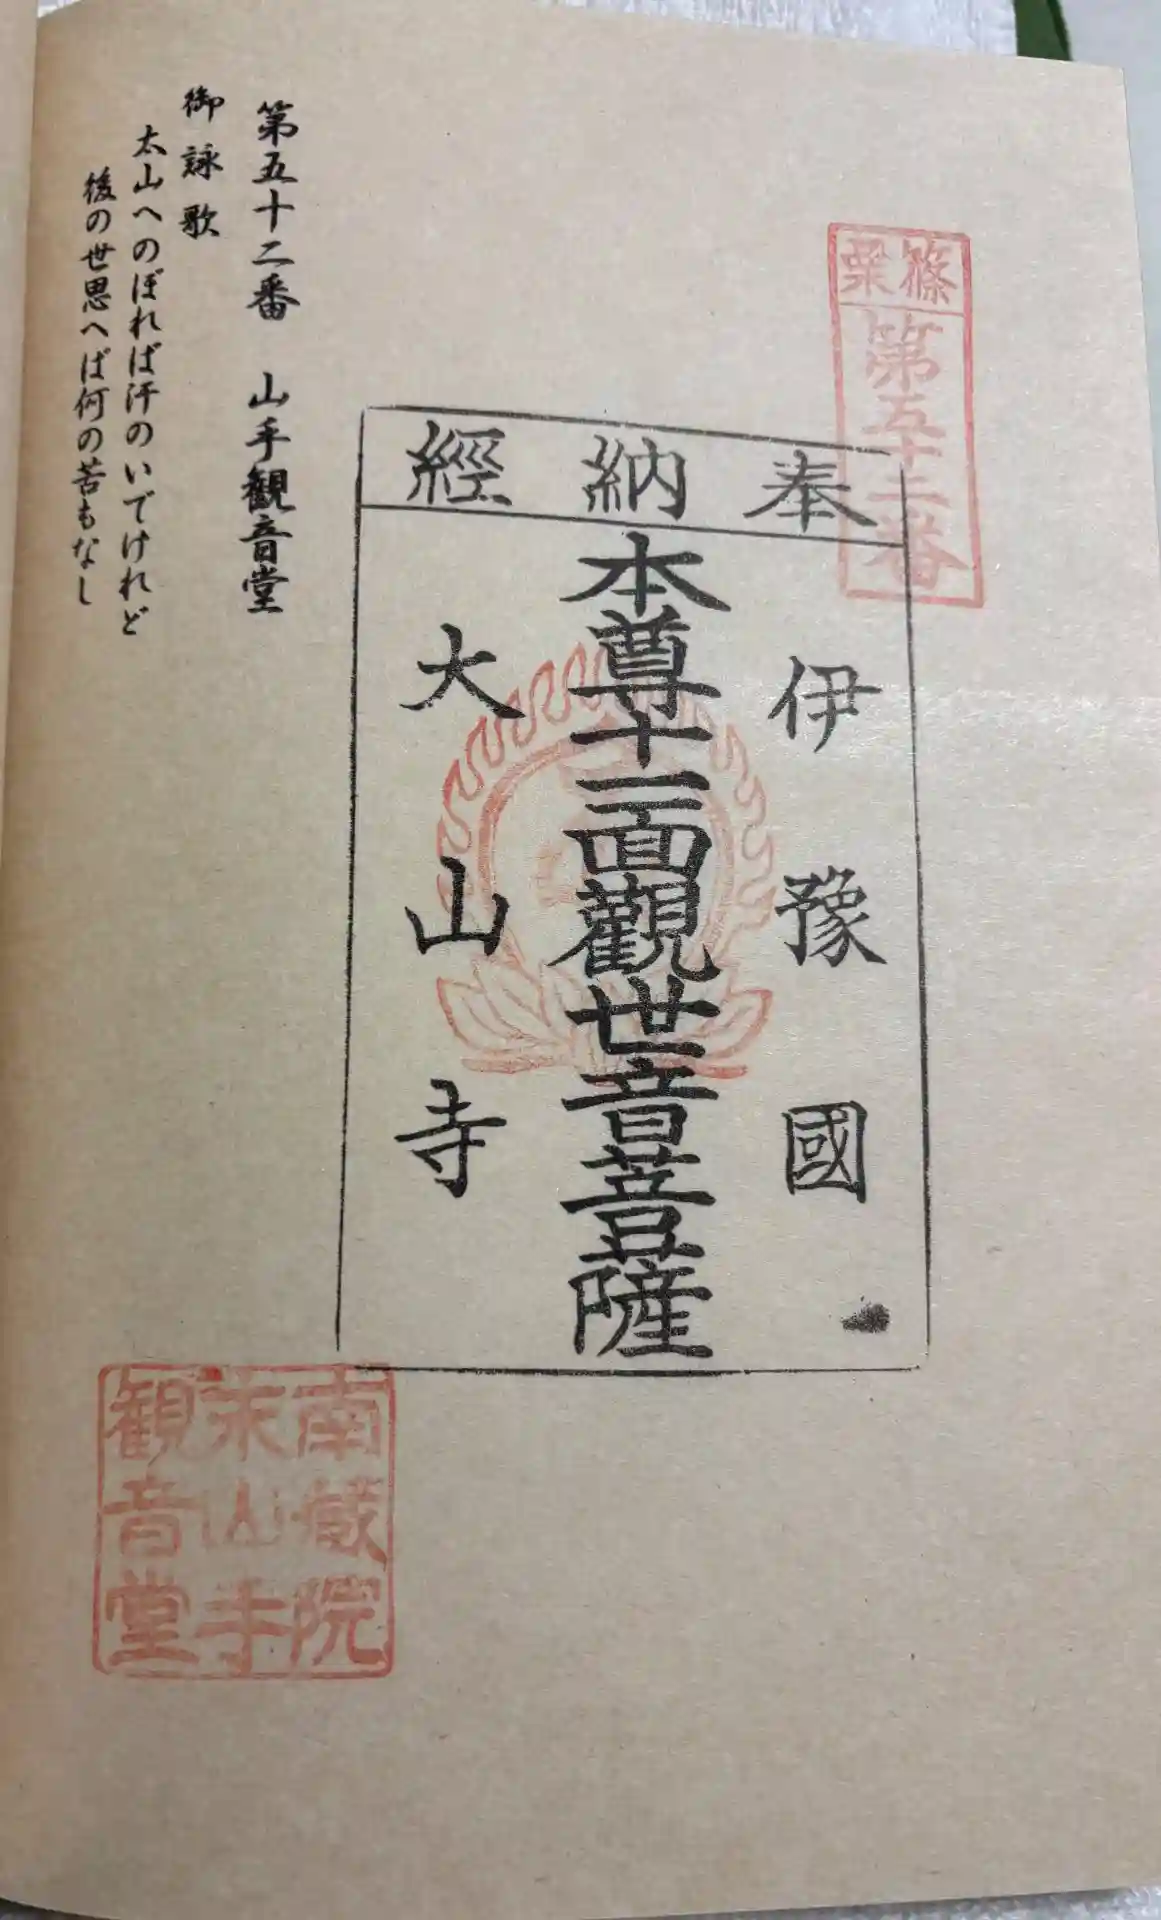 篠栗
第五十二番
奉納經
伊豫國
本尊十一面觀世音菩薩
大山寺
第五十二番 山手観音堂
御詠歌
太山へのぼれば汗のいでけれど
後の世思へば何の苦もなし
南蔵院
山手
観音堂